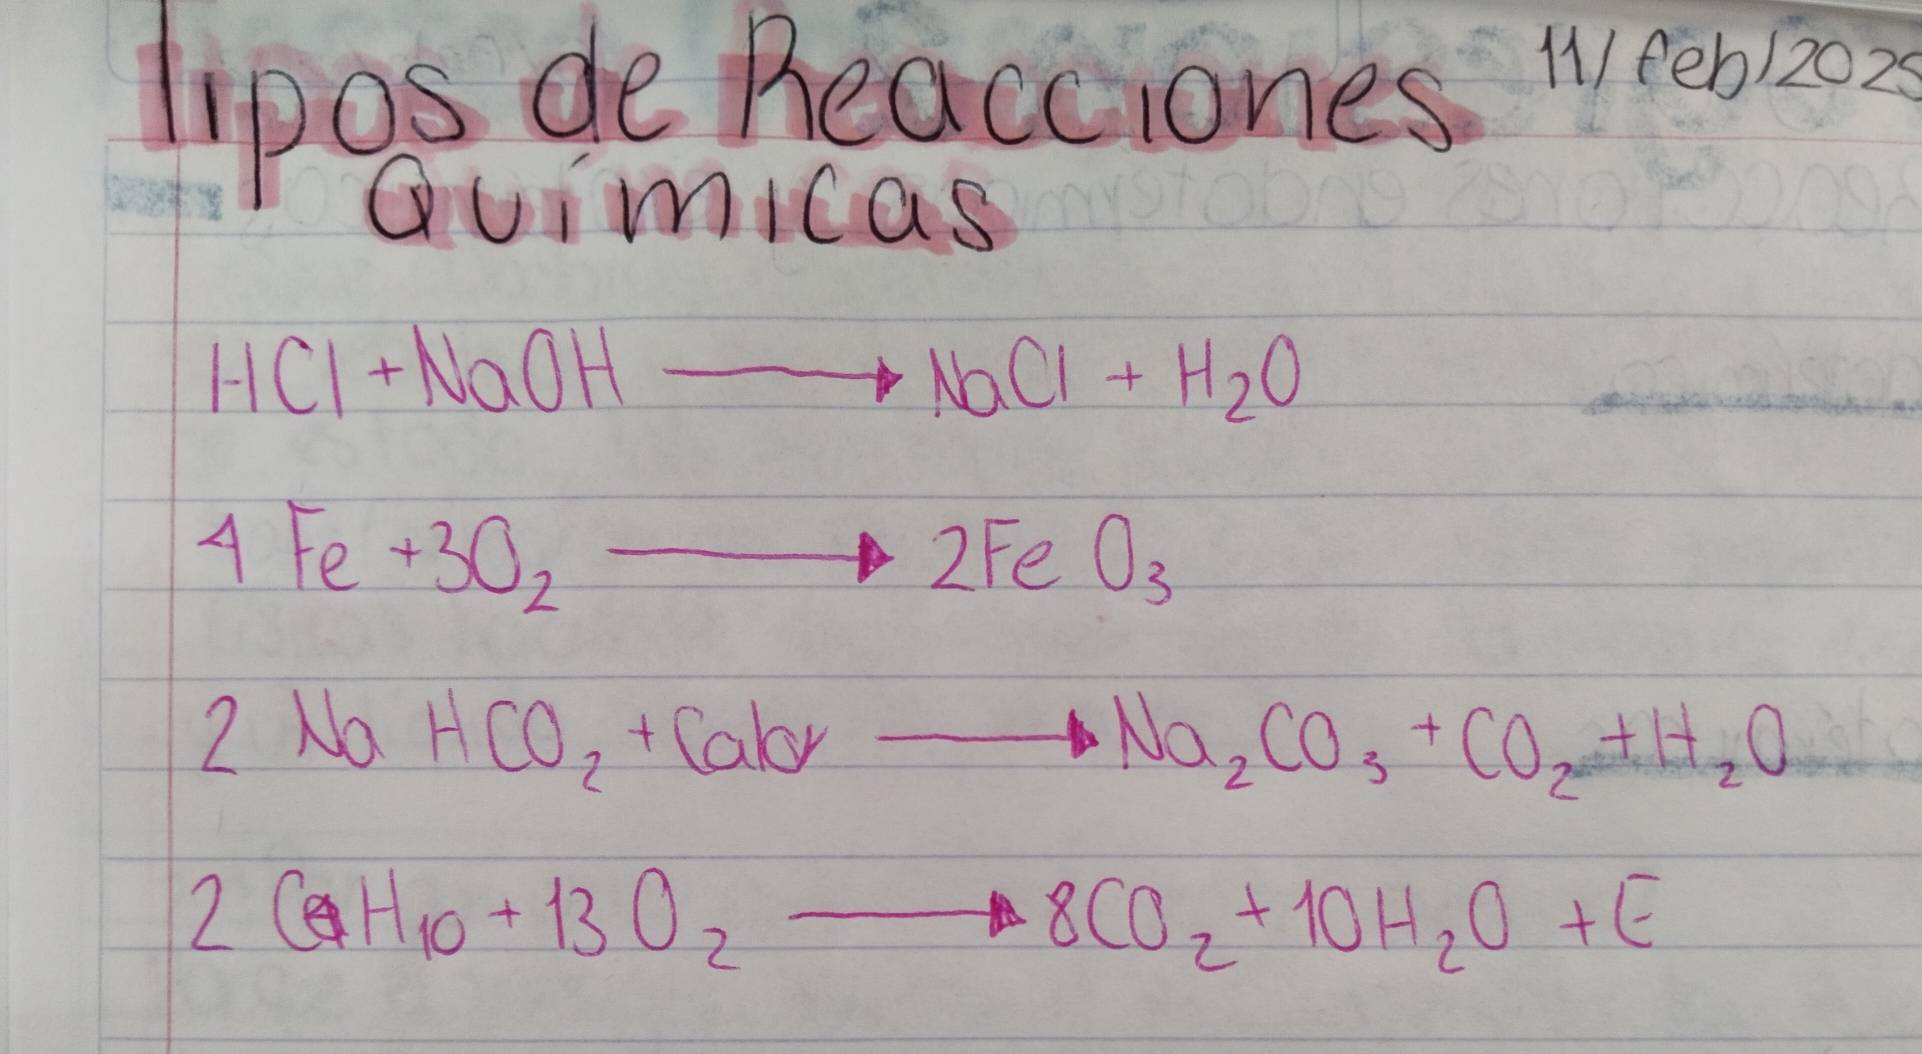 Tipos de Reacciones 11/feb/2025
Químicas
HCl + NaOH → NaCl + H₂O
4 Fe + 3O₂ → 2Fe O₃
2 Na HCO₂ + Calor → Na₂CO₃ + CO₂ + H₂O
2 C4H₁₀ + 13 O₂ → 8CO₂ + 10H₂O + E